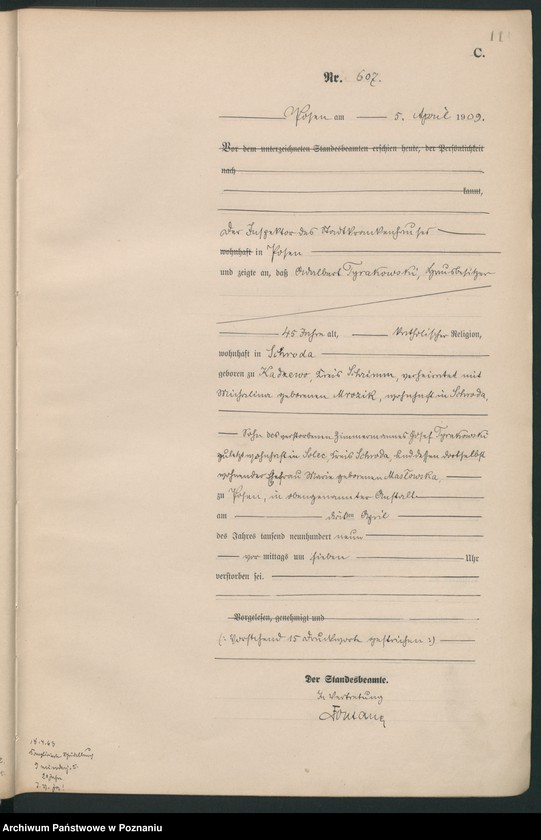 111
C.
Nr. 607.
Posen am 5. April 1909.
Vor dem unterzeichneten Standesbeamten erschien heute, der Persönlichkeit
nach
kannt,
Der Inspektor des Stadtkrankenhauses
wohnhaft in Posen
und zeigte an, daß Adalbert Tyrakowski, Hausbesitzer
45 Jahre alt, katholischer Religion,
wohnhaft in Schroda
geboren zu Kadzewo, Kreis Schrimm, verheiratet mit
Michalina geborenen Mrozik, wohnhaft in Schroda,
Sohn des verstorbenen Zimmermannes Josef Tyrakowski
zuletzt wohnhaft in Solec, Kreis Schroda, und dessen dortselbst
wohnender Ehefrau Marie geborenen Masłowska,
zu Posen, in obengenannter Anstalt
am dritten April
des Jahres tausend neunhundert neun
vor mittags um sieben Uhr
verstorben sei.
Vorgelesen, genehmigt und
(: Vorstehend 15 Druckworte gestrichen :)
Der Standesbeamte.
In Vertretung
Archiwum Państwowe w Poznaniu